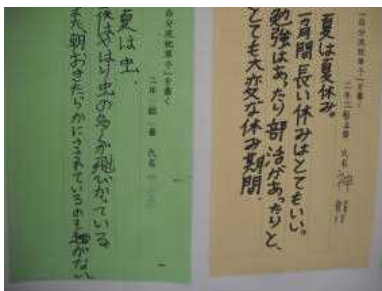 「自分流枕草子」を書く
二年二組五番 氏名 神
夏は夏休み。
一カ月間長い休みはとてもいい。
勉強はあったり部活があったりと、
とても大切な休み期間。
「自分流枕草子」を書く
二年 組 番 氏名
夏は虫。
夜はやはり虫の多くが飛びかっている。
また朝おきたらかにさされているのも